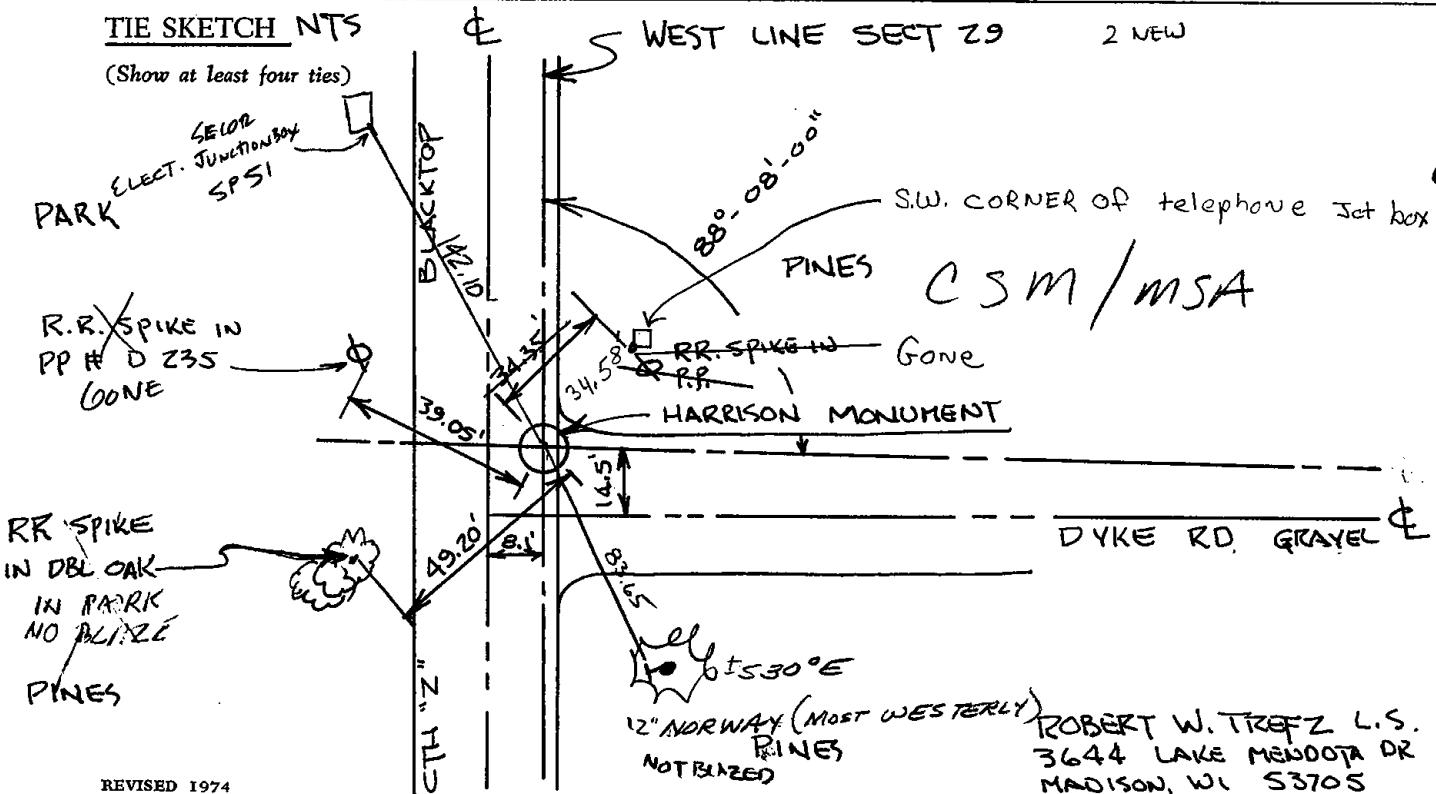 TIE SKETCH NTS
(Show at least four ties)
℄
WEST LINE SECT 29
2 NEW
ELECT. JUNCTION BOX
SP51
PARK
BLACKTOP
142.10
88°-08'-00"
S.W. CORNER OF telephone Jct box
PINES
CSM/MSA
R.R. SPIKE IN
PP # D 235
GONE
34.35'
34.58'
RR. SPIKE IN
P.P.
Gone
HARRISON MONUMENT
39.05'
14.5'
RR SPIKE
IN DBL OAK
IN PARK
NO BLAZE
PINES
49.20'
8.1'
DYKE RD. GRAVEL ℄
83.65
CTH "Z"
±S30°E
12" NORWAY (MOST WESTERLY)
PINES
NOT BLAZED
ROBERT W. TREFZ L.S.
3644 LAKE MENDOTA DR
MADISON, WI 53705
REVISED 1974